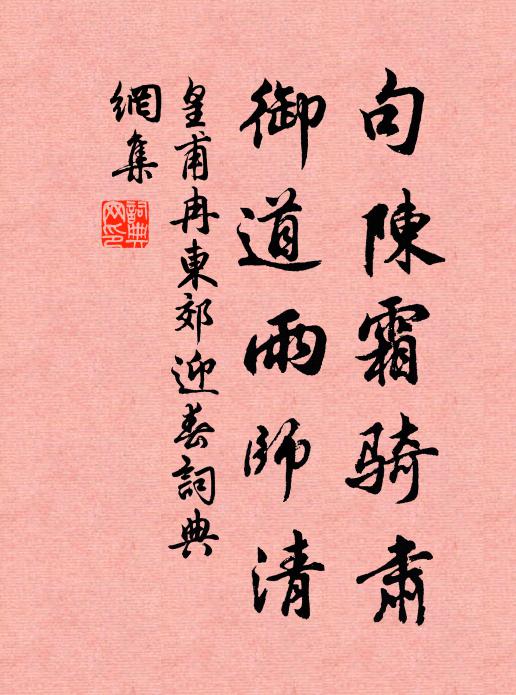 句陳霜騎肅
御道雨師清
皇甫冉東郊迎春詞典
網集
詞典
网印